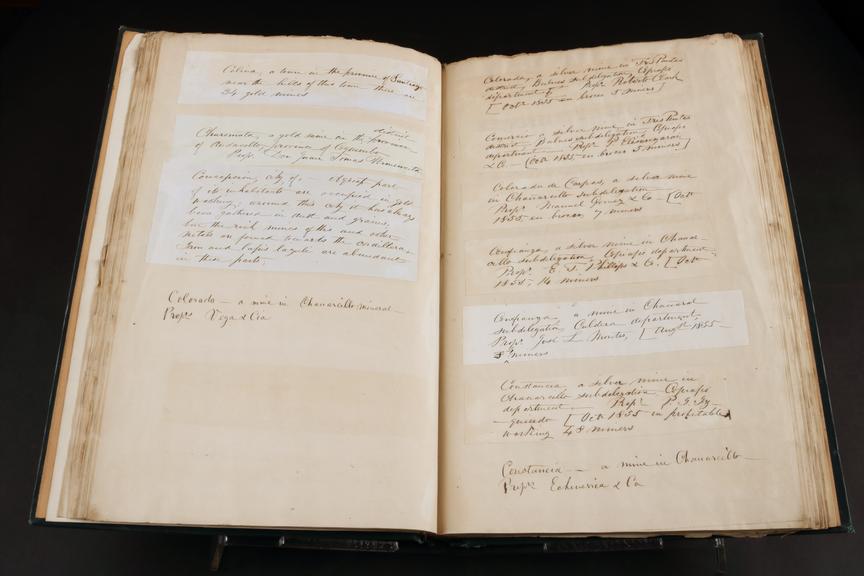 Colina, a town in the province of Santiago
near the hills of this town there are
24 gold mines
district
Churumata, a gold mine in the province
of Andacollo, province of Coquimbo
Propr. Don Juan Tomas
Concepcion, city of, — A great part
of its inhabitants are occupied in gold
washing; around this city it has always
been gathered in dust and grains,
but the rich mines of this and other
metals are found towards the cordilleras
Iron and lapis lazule are abundant
in these parts.
Colorado — a mine in Chanarcillo mineral —
Propr. Vega & Cia
Colorada, a silver mine in Tres Puntas
district, Bulnes subdelegation, Copiapo
department — Propr. Roberto
[ Octr. 1855 in broceo 5 miners ]
Comercio a silver mine in Tres Puntas
district Bulnes subdelegation, Copiapo
department — Propr. P
& Co. — [ Octr. 1855 in broceo 5 miners ]
Colorada de Carpas, a silver mine
in Chanarcillo subdelegation
Propr. Manuel Gomez & Co — [ Octr.
1855 in broceo, 7 miners
Confianza, a silver mine in Chanar-
cillo subdelegation, Copiapo department
Propr. E. J. Phillips & Co. [ Octr.
1855, 14 miners
Confianza, a mine in Chanaral
subdelegation, Caldera department
Propr. José L. Montes, [ Augt. 1855
miners
Constancia a silver mine in
Chanarcillo subdelegation Copiapo
department — Propr. P. G.
[ Octr. 1855 in profitable
working 48 miners
Constancia — a mine in Chanarcillo —
Propr. Echeverria & Ca